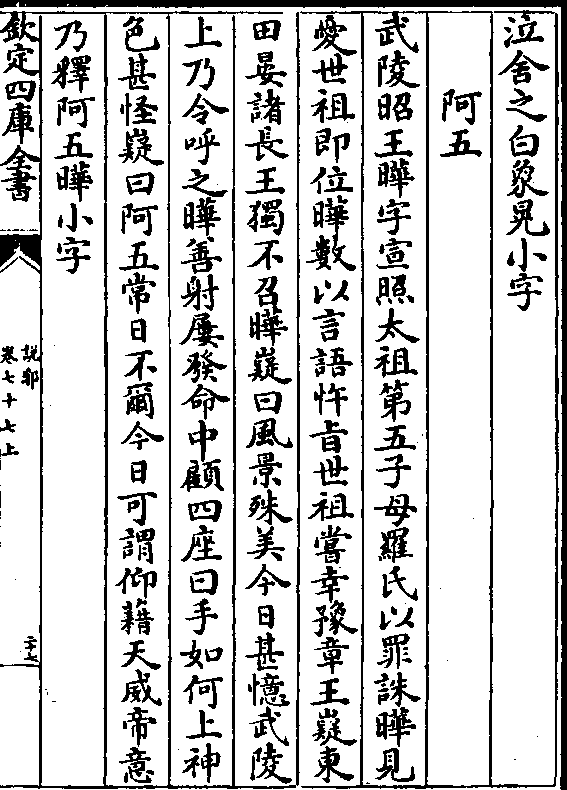 泣舍之白象晃小字
阿五
武陵昭王曄字宣照太祖第五子母羅氏以罪誅曄見
愛世祖即位曄數以言語忤旨世祖嘗幸豫章王嶷東
田宴諸長王獨不召曄嶷曰風景殊美今日甚憶武陵
上乃令呼之曄善射屢發命中顧四座曰手如何上神
色甚怪嶷曰阿五常日不爾今日可謂仰藉天威帝意
乃釋阿五曄小字
欽定四庫全書
說郛
卷七十七上
二十七